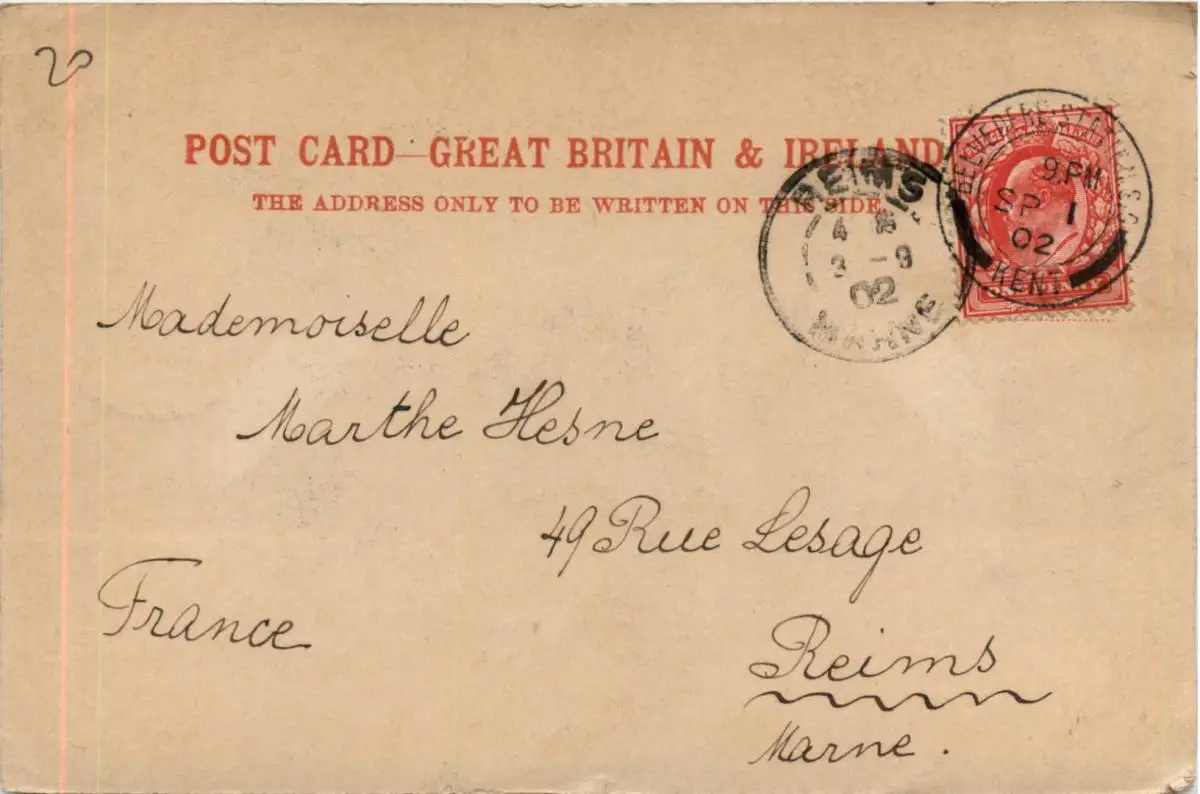 20
POST CARD—GREAT BRITAIN & IRELAND
THE ADDRESS ONLY TO BE WRITTEN ON THIS SIDE
BELVEDERE STATION S.O.
9 PM
SP 1
02
KENT
REIMS
3 - 9
02
MARNE
Mademoiselle
Marthe Hesne
49 Rue Lesage
France
Reims
Marne.